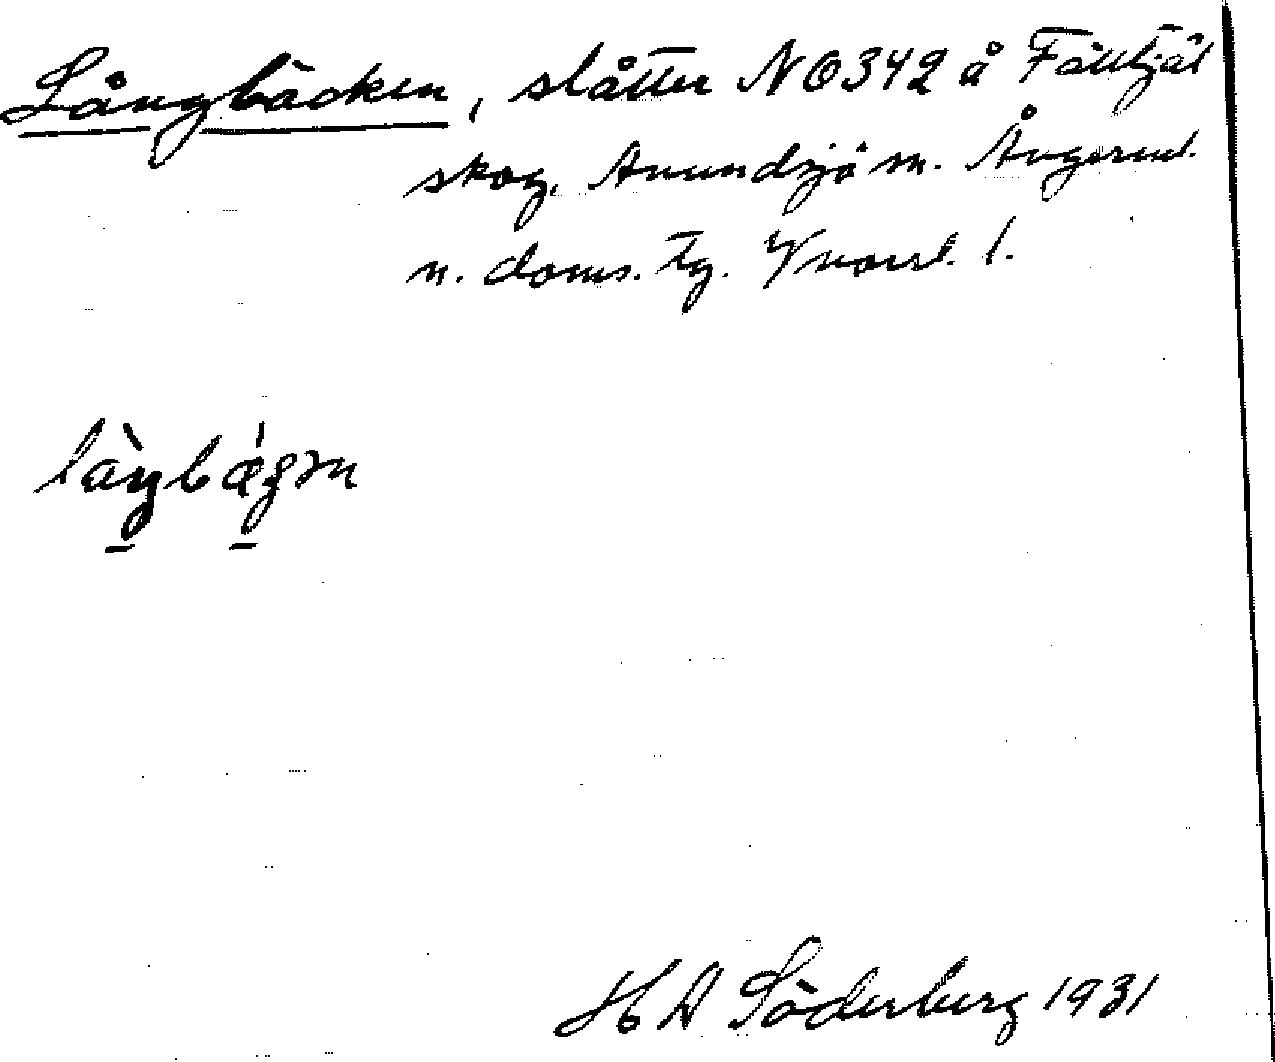 Långbäcken, slåtter NO342 å Fälltjäl
skog, Anundsjö sn. Ångerml.
n. doms. tg. Vnorrl. l.
H A Söderberg 1931